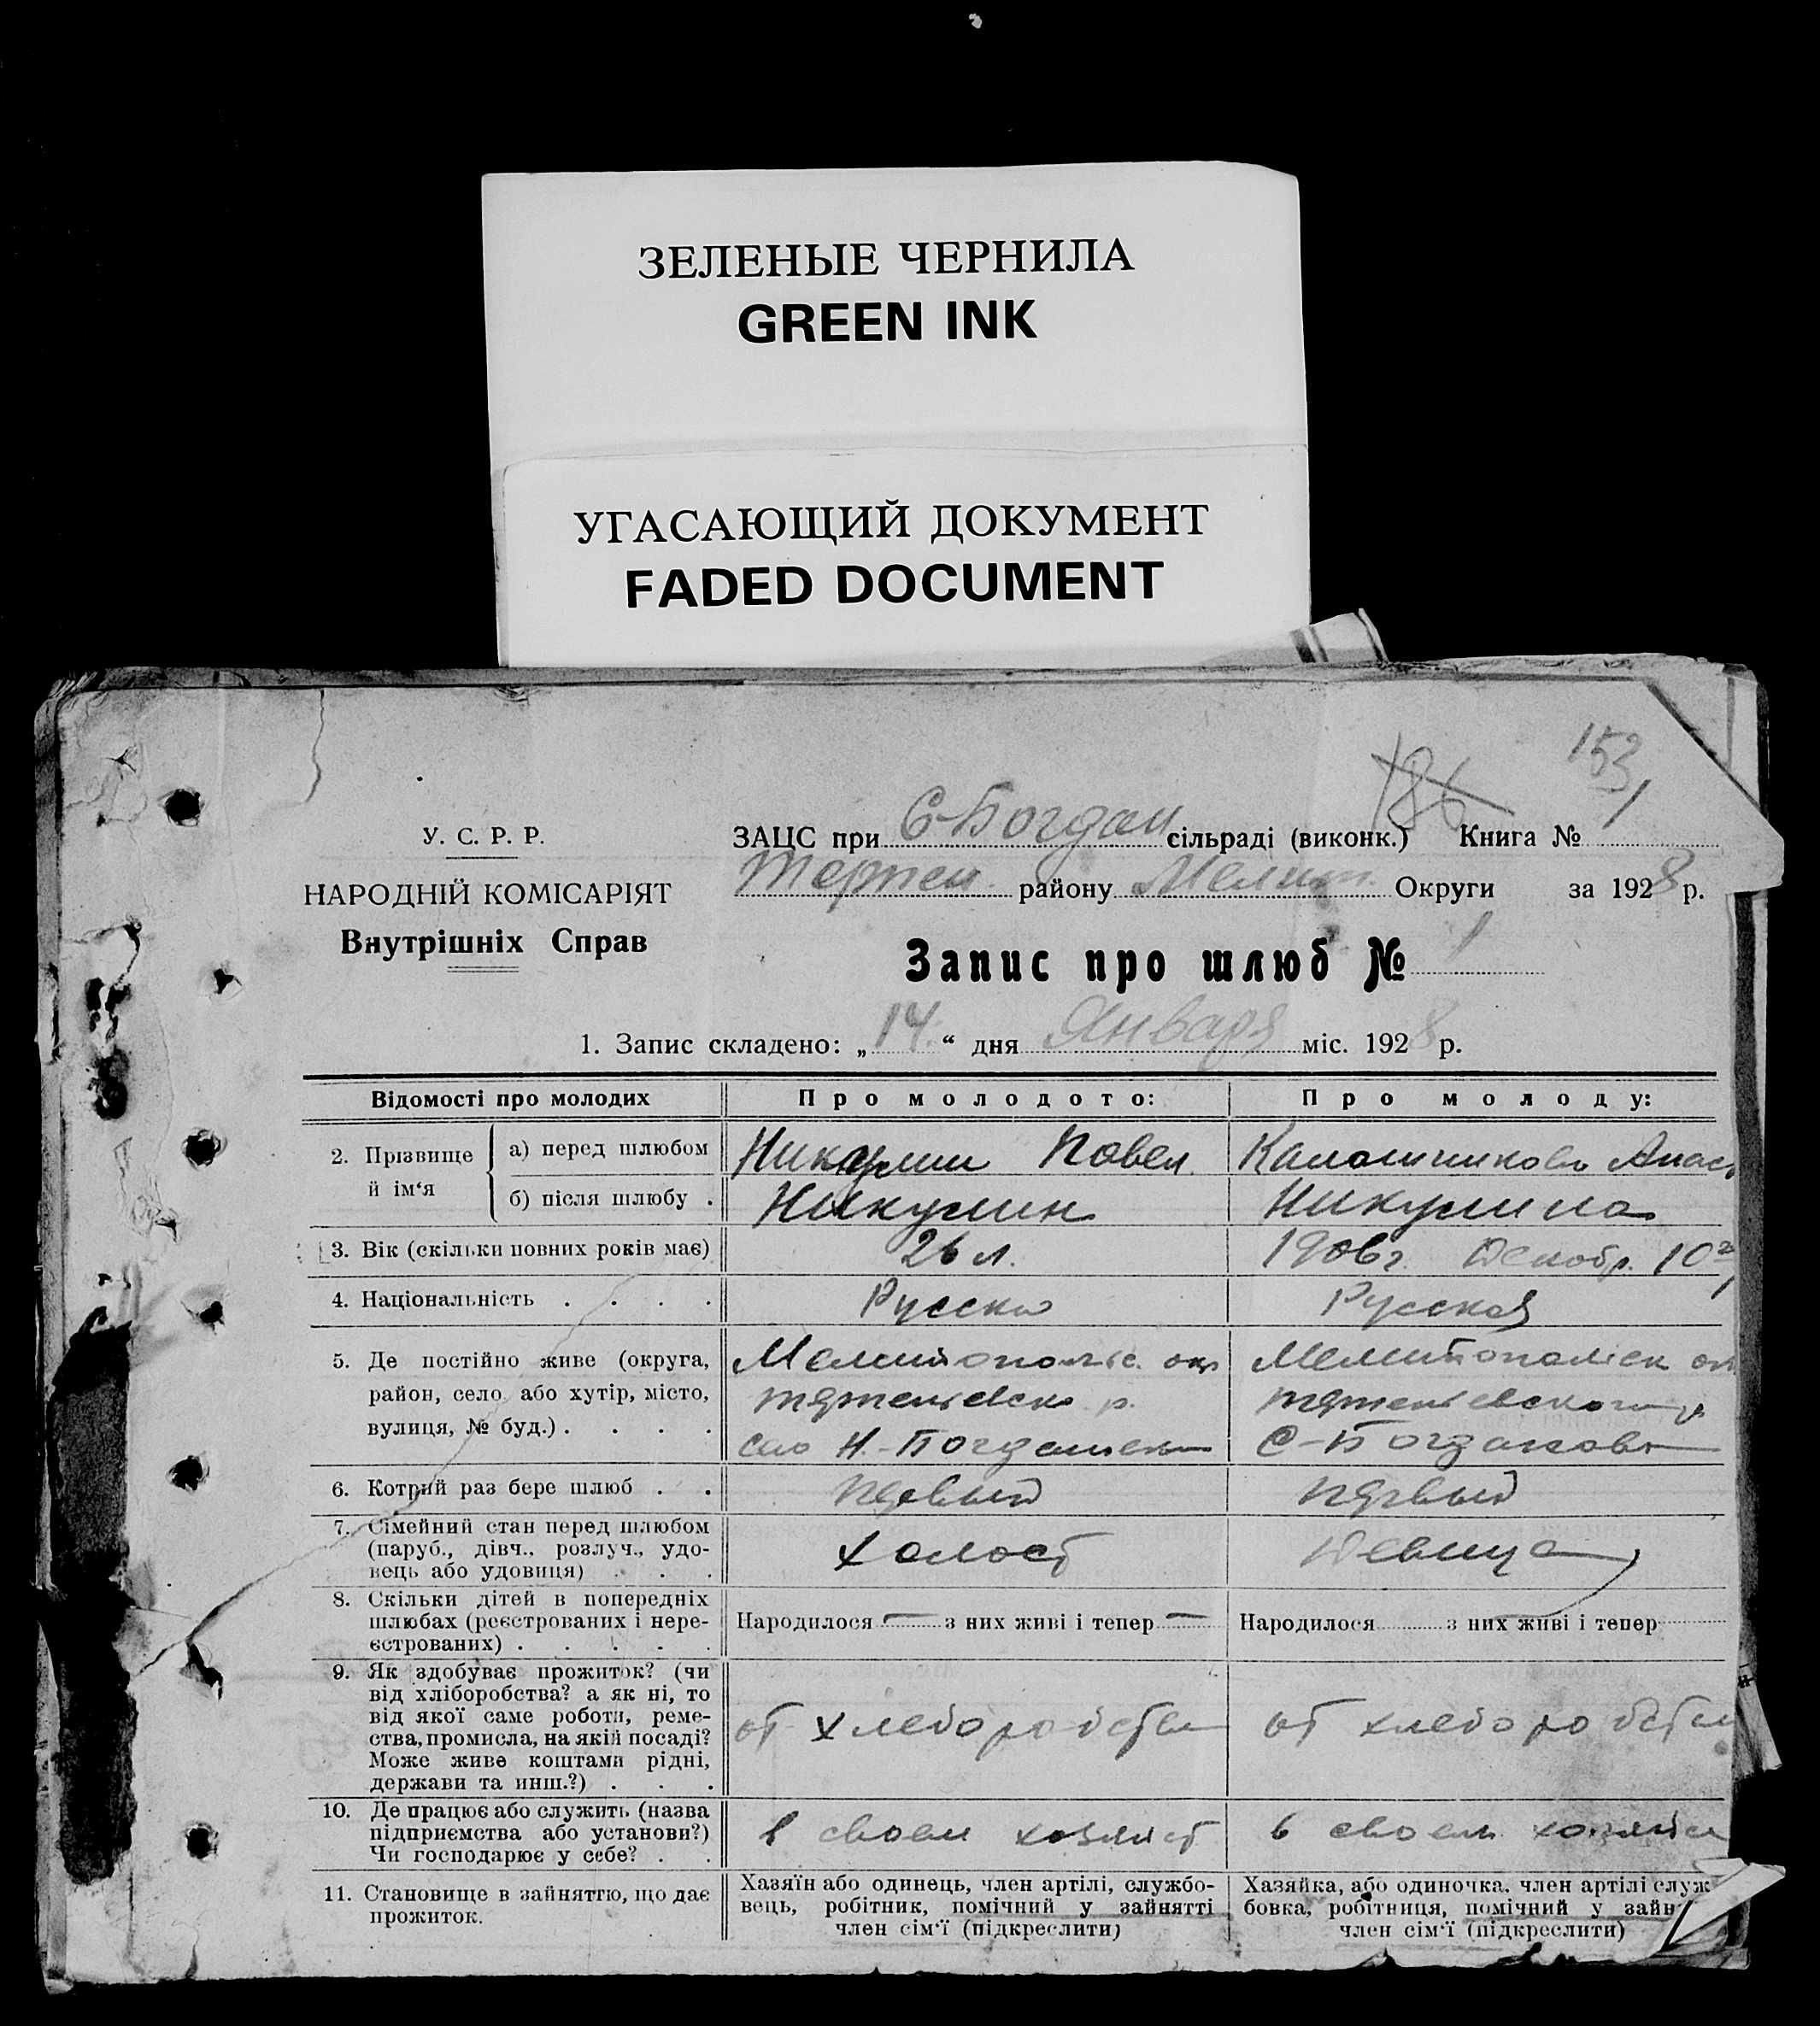 ЗЕЛЕНЫЕ ЧЕРНИЛА
GREEN INK
УГАСАЮЩИЙ ДОКУМЕНТ
FADED DOCUMENT
186
153
У. С. Р. Р.
НАРОДНІЙ КОМІСАРІЯТ
Внутрішніх Справ
ЗАЦС при С-Богдан сільраді (виконк.) Книга № 1
Терпен. району Мелит. Округи за 1928 р.
Запис про шлюб № 1
1. Запис складено: „14.“ дня Января міс. 1928 р.
Відомості про молодих
Про молодого:
Про молоду:
2. Прізвище й ім‘я
а) перед шлюбом
Никулин Повел
Анас
б) після шлюбу .
Никулин
Никулина
3. Вік (скільки повних років має)
26 л.
1906 г. Декобр. 10
4. Національність . . . .
Русски
Русская
5. Де постійно живе (округа,
район, село або хутір, місто,
вулиця, № буд.) . . . .
Мелитопольс. окр
р.
Н.-Богданевка
Мелитополіск ок
С-Богдановк
6. Котрий раз бере шлюб . .
первый
первый
7. Сімейний стан перед шлюбом
(паруб., дівч., розлуч., удо-
вець або удовиця) . . .
холост
Девица
8. Скільки дітей в попередніх
шлюбах (реєстрованих і нере-
єстрованих) . . . . .
Народилося — з них живі і тепер —
Народилося з них живі і тепер
9. Як здобуває прожиток? (чи
від хліборобства? а як ні, то
від якої саме роботи, реме-
ства, промисла, на якій посаді?
Може живе коштами рідні,
держави та инш.?) . . .
от хлеборобства
от хлеборобства
10. Де працює або служить (назва
підприємства або установи?)
Чи господарює у себе? . .
в своем хозяйст
в своем хозяйс
11. Становище в зайняттю, що дає
прожиток.
Хазяїн або одинець, член артілі, службо-
вець, робітник, помічний у зайнятті
член сім‘ї (підкреслити)
Хазяйка, або одиночка, член артілі служ
бовка, робітниця, помічний у зайн
член сім‘ї (підкреслити)